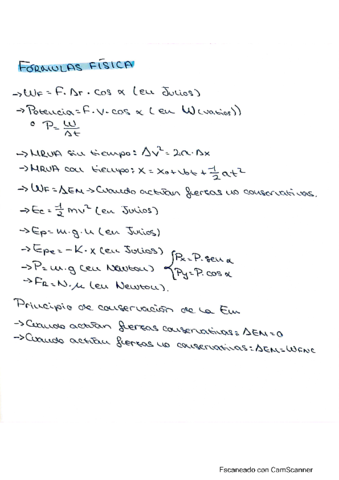 FÓRMULAS FÍSICA
→WF = F. Δr . cos α (en Julios)
→Potencia = F . V . cos α (en W (vatios))
° P = W/Δt
→MRUA sin tiempo: Δv² = 2a . Δx
→MRUA con tiempo: x = x₀ + v₀t + 1/2 at²
→WF = ΔEM → Cuando actúan fuerzas no conservativas.
→Ec = 1/2 mv² (en Julios)
→Ep = m . g . h (en Julios)
→Epe = -K . x (en Julios)
→P = m . g (en Newton) { Px = P . sen α
Py = P . cos α
→FR = N . μ (en Newton).
Principio de conservación de la Em
→Cuando actúan fuerzas conservativas: ΔEM = 0
→Cuando actúan fuerzas no conservativas: ΔEM = WFNC
Escaneado con CamScanner